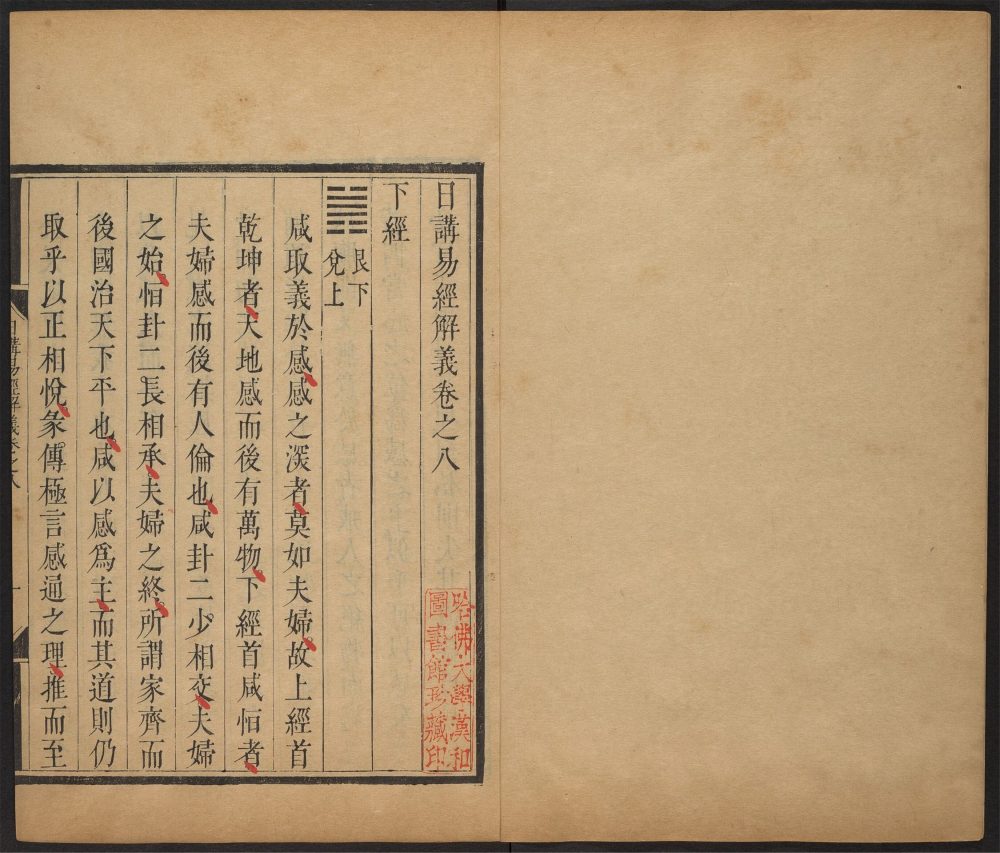 日講易經解義卷之八
下經
䷞艮下
兌上
咸取義於感感之深者莫如夫婦故上經首
乾坤者天地感而後有萬物下經首咸恒者
夫婦感而後有人倫也咸卦二少相交夫婦
之始恒卦二長相承夫婦之終所謂家齊而
後國治天下平也咸以感爲主而其道則仍
取乎以正相悅彖傳極言感通之理推而至
日講易經解義卷之八
一
哈佛大學漢和
圖書館珍藏印